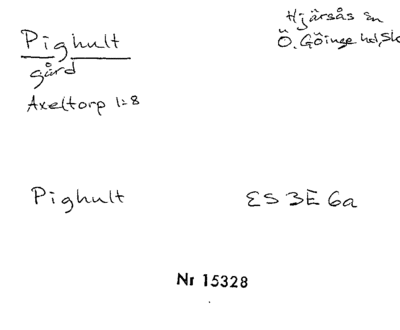 Pighult
gård
Axeltorp 1:8
Hjärsås sn
Ö. Göinge hd, Sk
Pighult
ES 3E 6a
Nr 15328